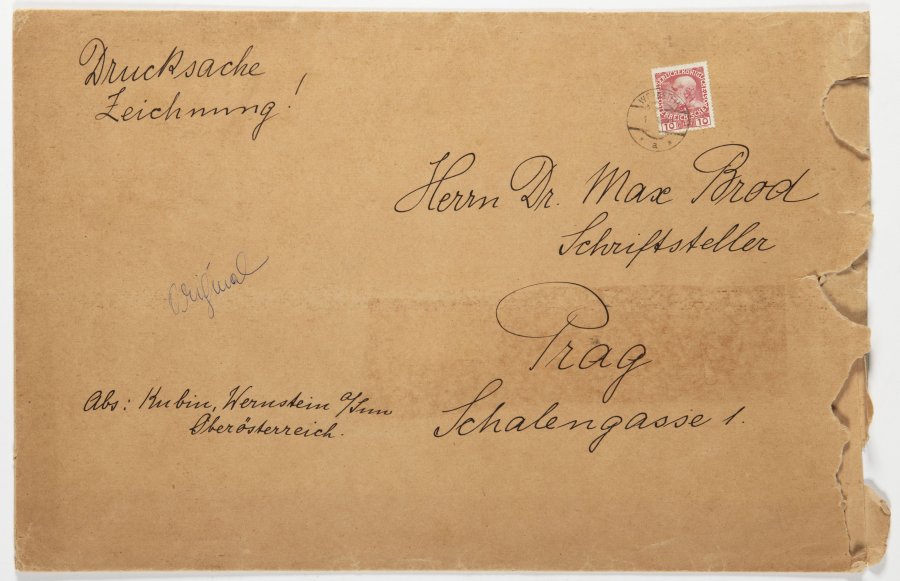 Drucksache
Zeichnung!
10 10
a
Herrn Dr. Max Brod
Schriftsteller
Original
Prag
Abs: Kubin, Wernstein a/Inn
Oberösterreich.
Schalengasse 1.